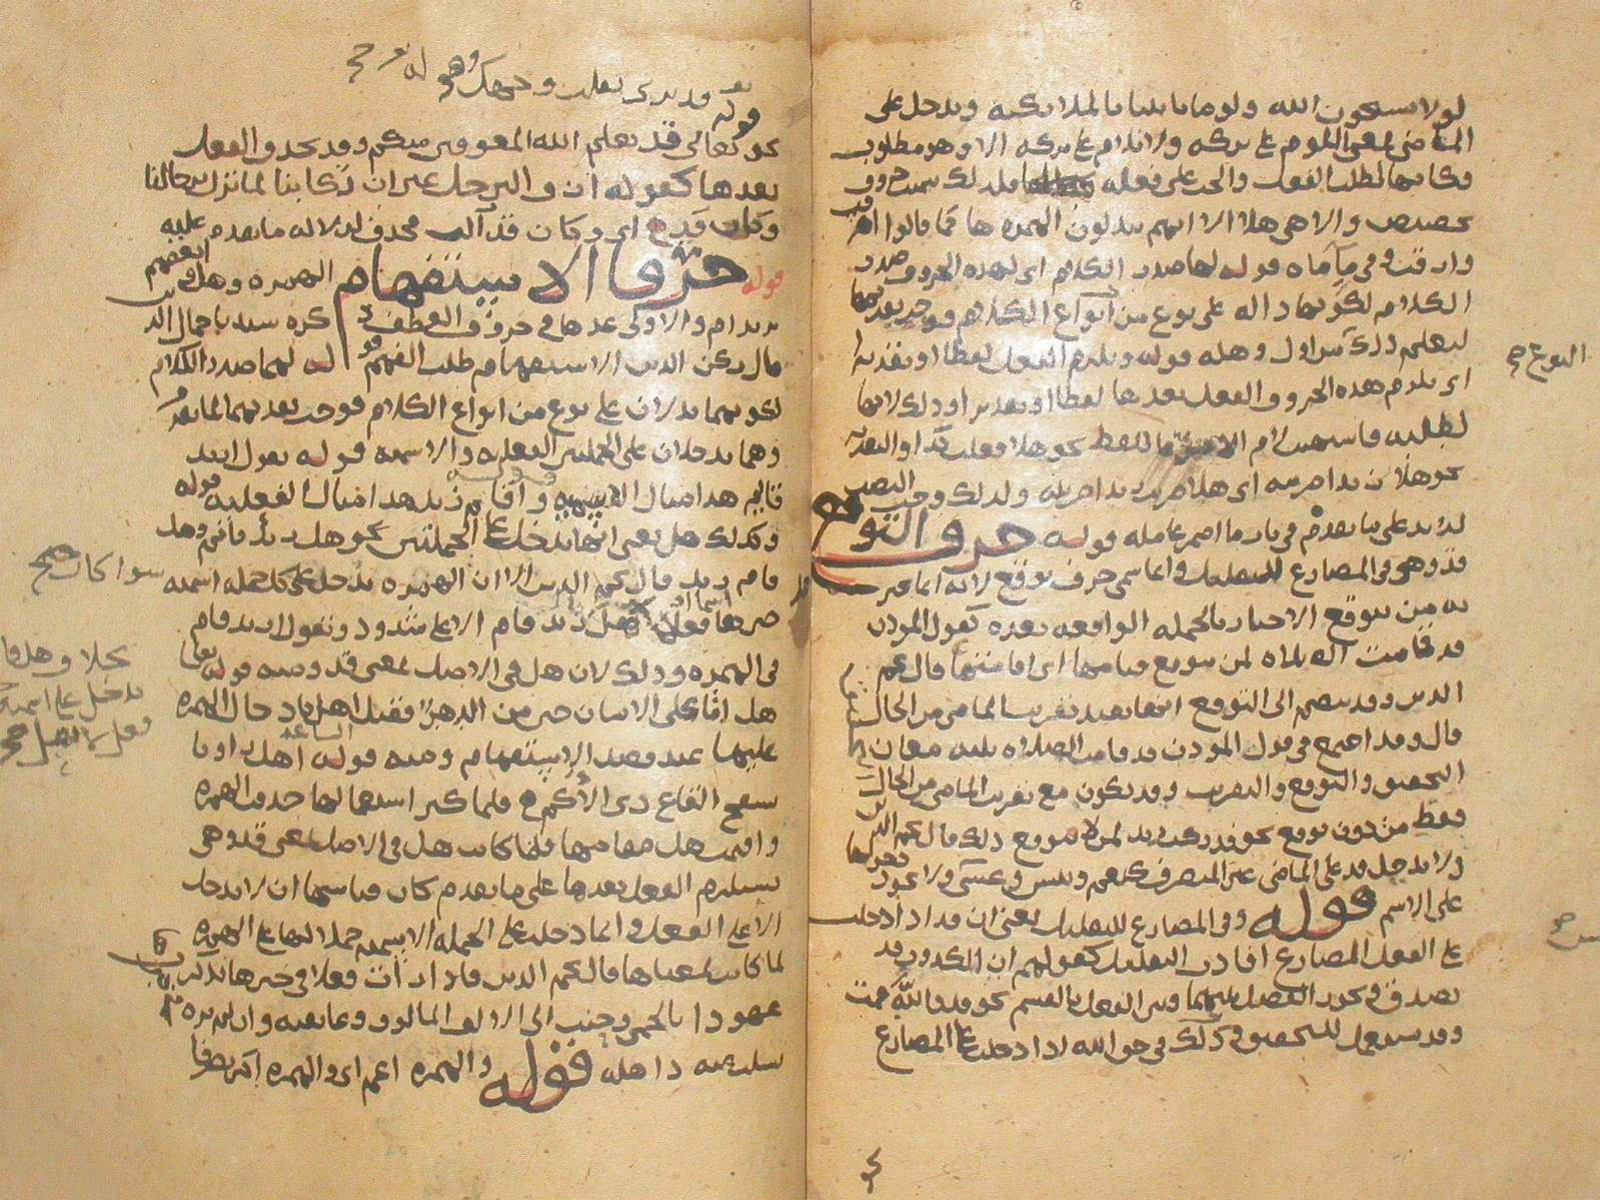 لولا تستغفرون الله ولو ما تأتينا بالملائكة وتدخل على
الماضي بمعنى اللوم على تركه ولا يلام على تركه الا وهو مطلوب
فكأنها لطلب الفعل والحث على فعله فلذلك سميت حروف
تحضيض والا هي هلا الا انهم يبدلون الهمزة ها كما قالوا
وارقت في ماء ماه قوله لها صدر الكلام اي لهذه الحروف صدر
الكلام لكونها دالة على نوع من انواع الكلام فوجب تقديمها
ليعلم ذلك من اول وهلة قوله ويلزم الفعل لفظا او تقديرا
اي يلزم هذه الحروف الفعل بعدها لفظا او تقديرا وذلك لانها
لطلبه ما للفظ نحو هلا فعلت كذا والتقدير
نحو هلا زيدا ضربته اي هلا ضربت زيدا ضربته ولذلك وجب النصب
لزيد على ما تقدم في باب ما اضمر عامله قوله حرف التوقع
قد وهي في المضارع للتقليل وانما سمي حرف توقع لانه انما يخبر
به من يتوقع الاخبار بالجملة الواقعة بعده كقول المؤذن
قد قامت الصلاة لمن يتوقع قيامها اي اقامتها قال نجم
الدين وقد ينضم الى التوقع انها تفيد تقريب الماضي من الحال
قال وقد اجتمع في قول المؤذن قد قامت الصلاة ثلثة معان
التحقيق والتوقع والتقريب وقد يكون مع تقريب الماضي من الحال
فقط من دون توقع نحو قد ركب زيد لمن لا يتوقع ذلك قال نجم الدين
ولا تدخل قد على الماضي غير المتصرف كنعم وبئس وعسى ولا يجوز دخولها
على الاسم قوله وفي المضارع للتقليل يعني ان قد اذا دخلت
على الفعل المضارع افادت التقليل كقولهم ان الكذوب قد
يصدق ويجوز الفصل بينها وبين الفعل بالقسم نحو قد والله
وقد تستعمل للتحقيق وذلك في حق الله اذا دخلت على المضارع
التوقع صح
قوله قد نرى تقلب وجهك
نحو قوله تعالى قد يعلم الله المعوقين منكم وقد يحذف الفعل
بعدها كقوله ازف الترحل غير ان ركابنا لما تزل برحالنا
وكأن قد اي وكأن قد زالت محذف لدلالة ما تقدم عليه
قوله حرفا الاستفهام الهمزة وهل وبعضهم
يزيد ام والاولى عدها في حروف العطف ذكره سيدنا جمال الدين
قال ركن الدين الاستفهام طلب الفهم قوله لهما صدر الكلام
لكونهما يدلان على نوع من انواع الكلام فوجب تقديمهما لما تقدم
وهما يدخلان على الجملتين الفعلية والاسمية قوله تقول ازيد
قائم هذا مثال الاسمية واقام زيد هذا مثال الفعلية قوله
وكذلك هل يعني انها تدخل على الجملتين نحو هل زيد قائم وهل
قام زيد قال نجم الدين الا ان الهمزة تدخل على كل جملة اسمية
سوا كان صح
خبرها فعلا هل زيد قام الا على شذوذ وتقول ازيد قام
في الهمزة وذلك لان هل في الاصل بمعنى قد ومنه قوله تعالى
بخلاف هل فلا
تدخل على اسمية
هل اتى على الانسان حين من الدهر فقيل اهل بادخال الهمزة
عليها عند قصد الاستفهام ومنه قوله اهل راونا
بسفح القاع ذي الاكم فلما كثر استعمالها حذفت الهمزة
واقيمت هل مقامها فلما كانت هل في الاصل بمعنى قد وهي
تستلزم الفعل بعدها على ما تقدم كان قياسها ان لا تدخل
الا على الفعل وانما دخلت على الجملة الاسمية حملا لها على الهمزة
لما كانت بمعناها قال نجم الدين فاذا رأت فعلا في حيزها تذكرت
عهودا بالحمى وحنت الى الالف المالوف وعانقته وان لم تره
تسلت عنه ذاهلة قوله والهمزة اعم اي والهمزة اكثر تصرفا